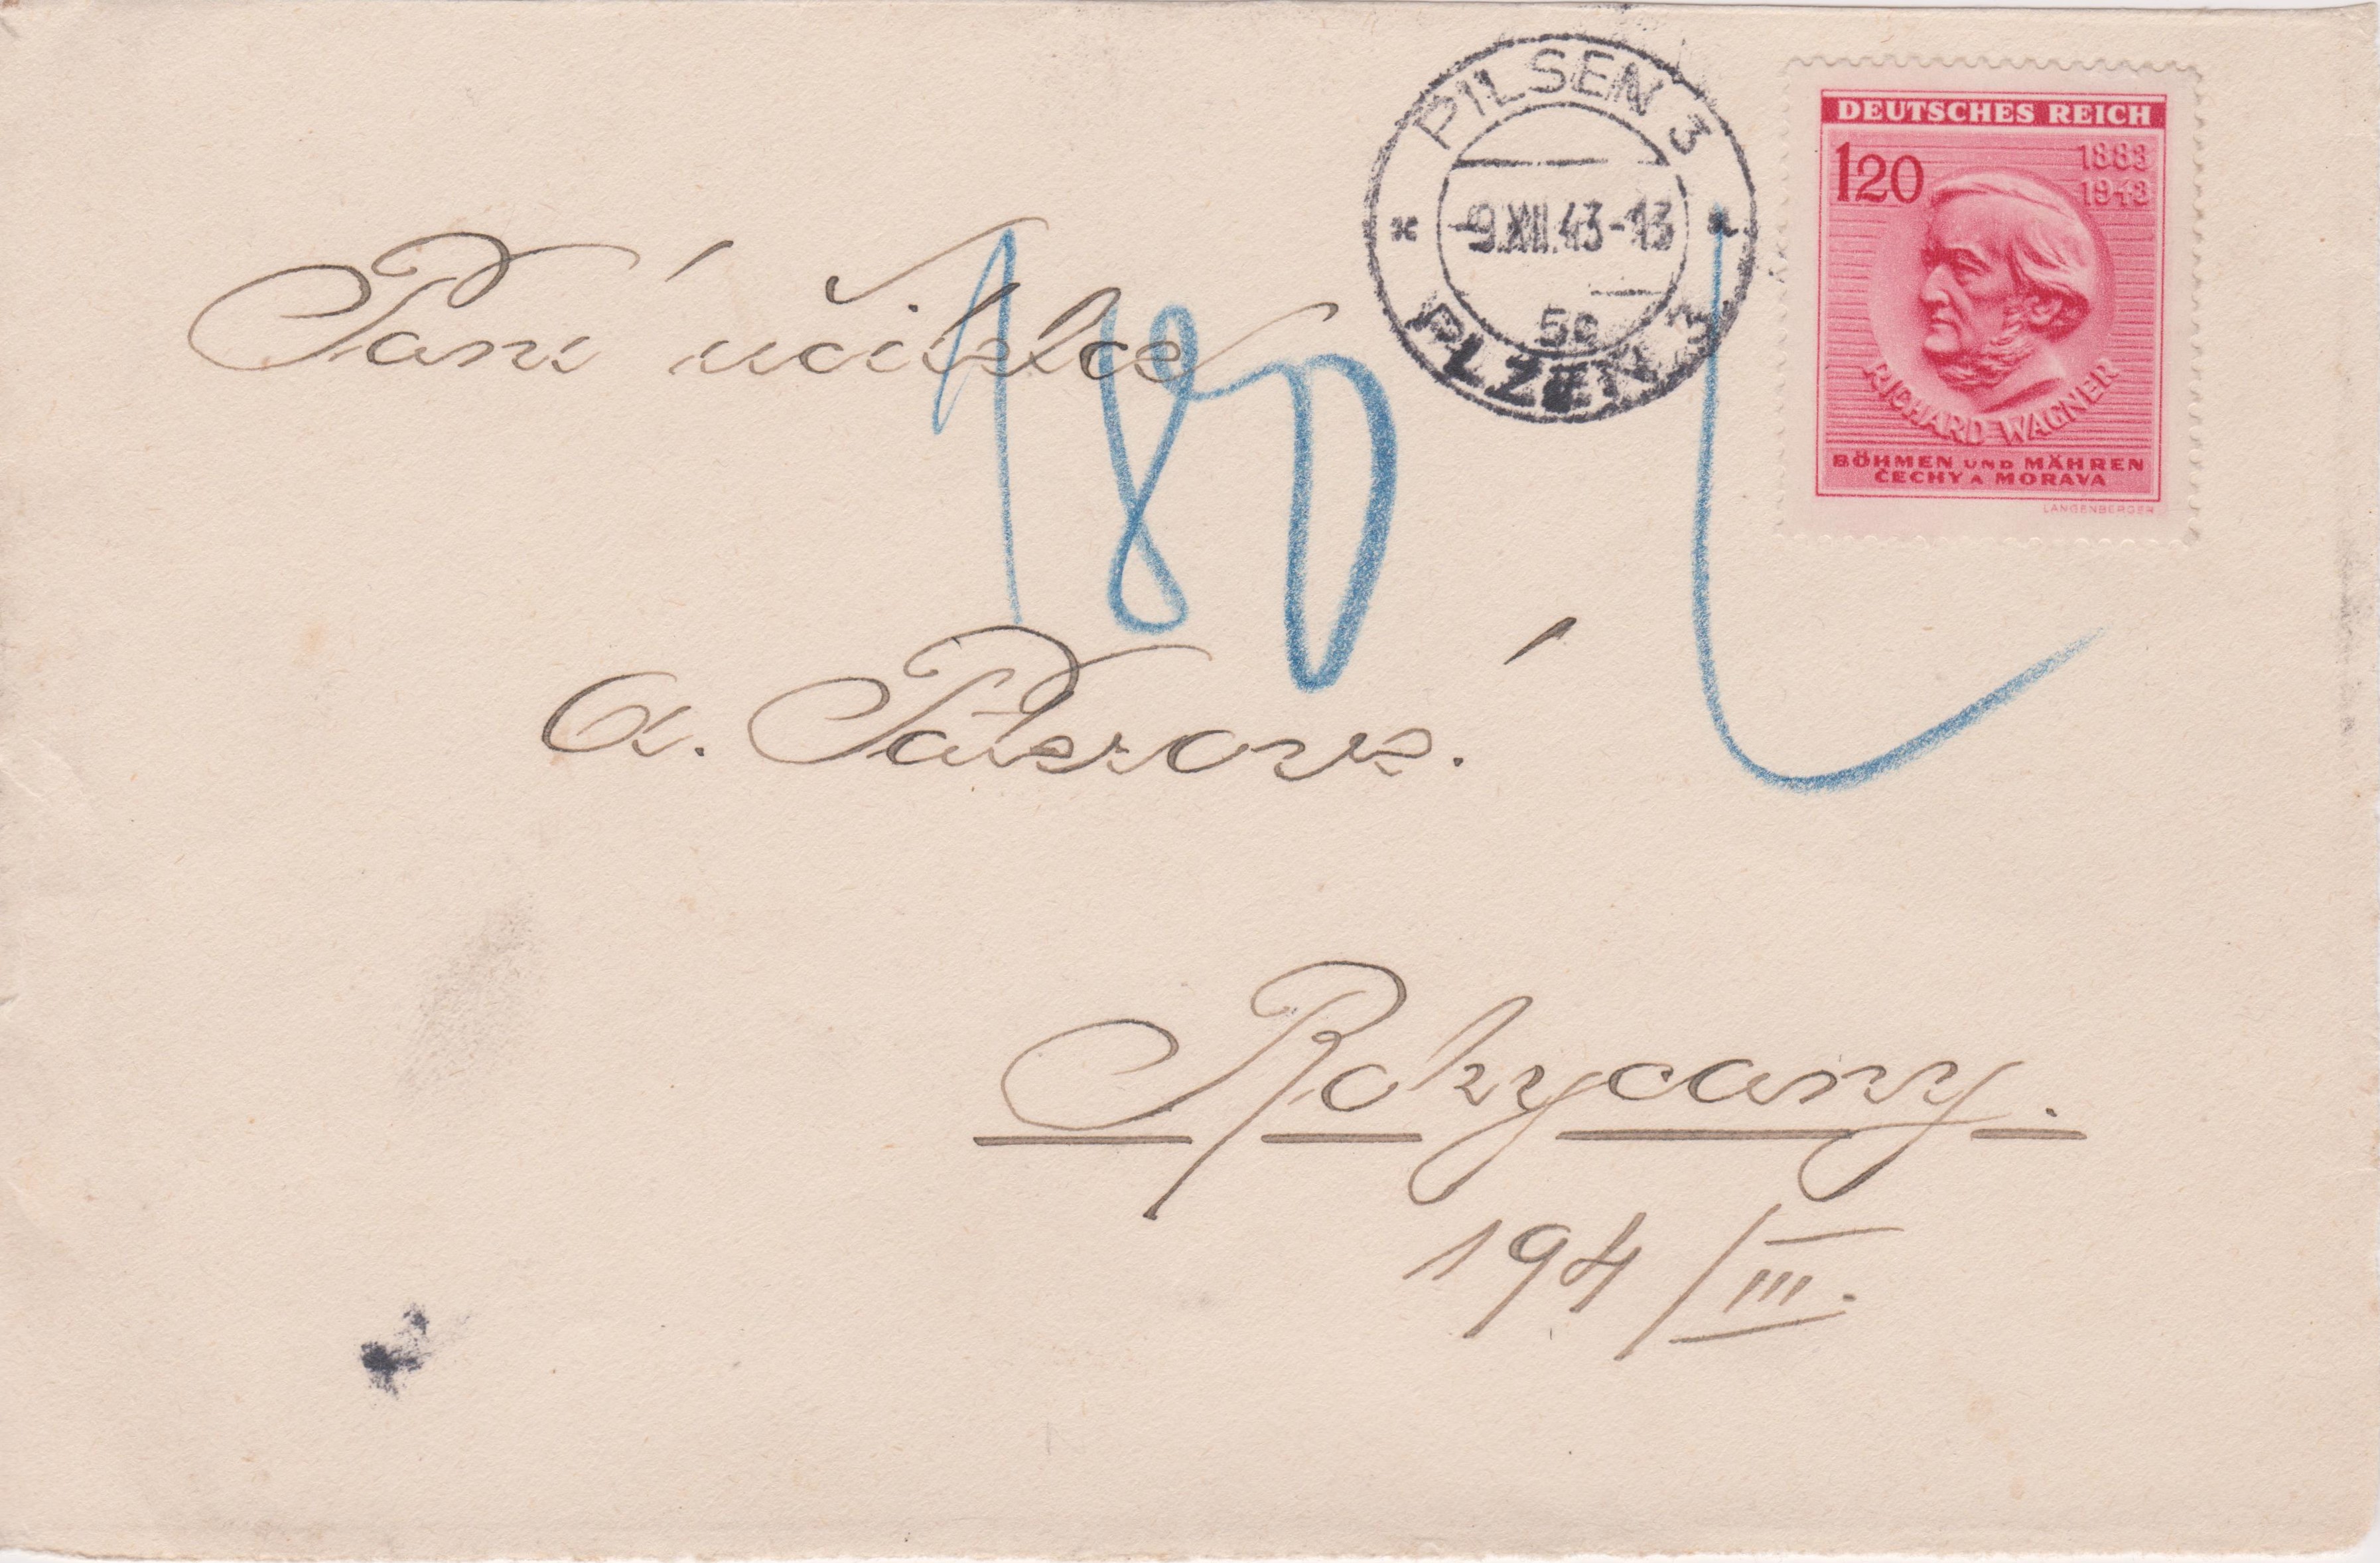 PILSEN 3
-9.XII.43-13
5c
PLZEŇ 3
DEUTSCHES REICH
120
1883
1943
RICHARD WAGNER
BÖHMEN UND MÄHREN
ČECHY A MORAVA
LANGENBERGER
180
Paní učitelce
A. Páterové.
Rokycany.
194/III.